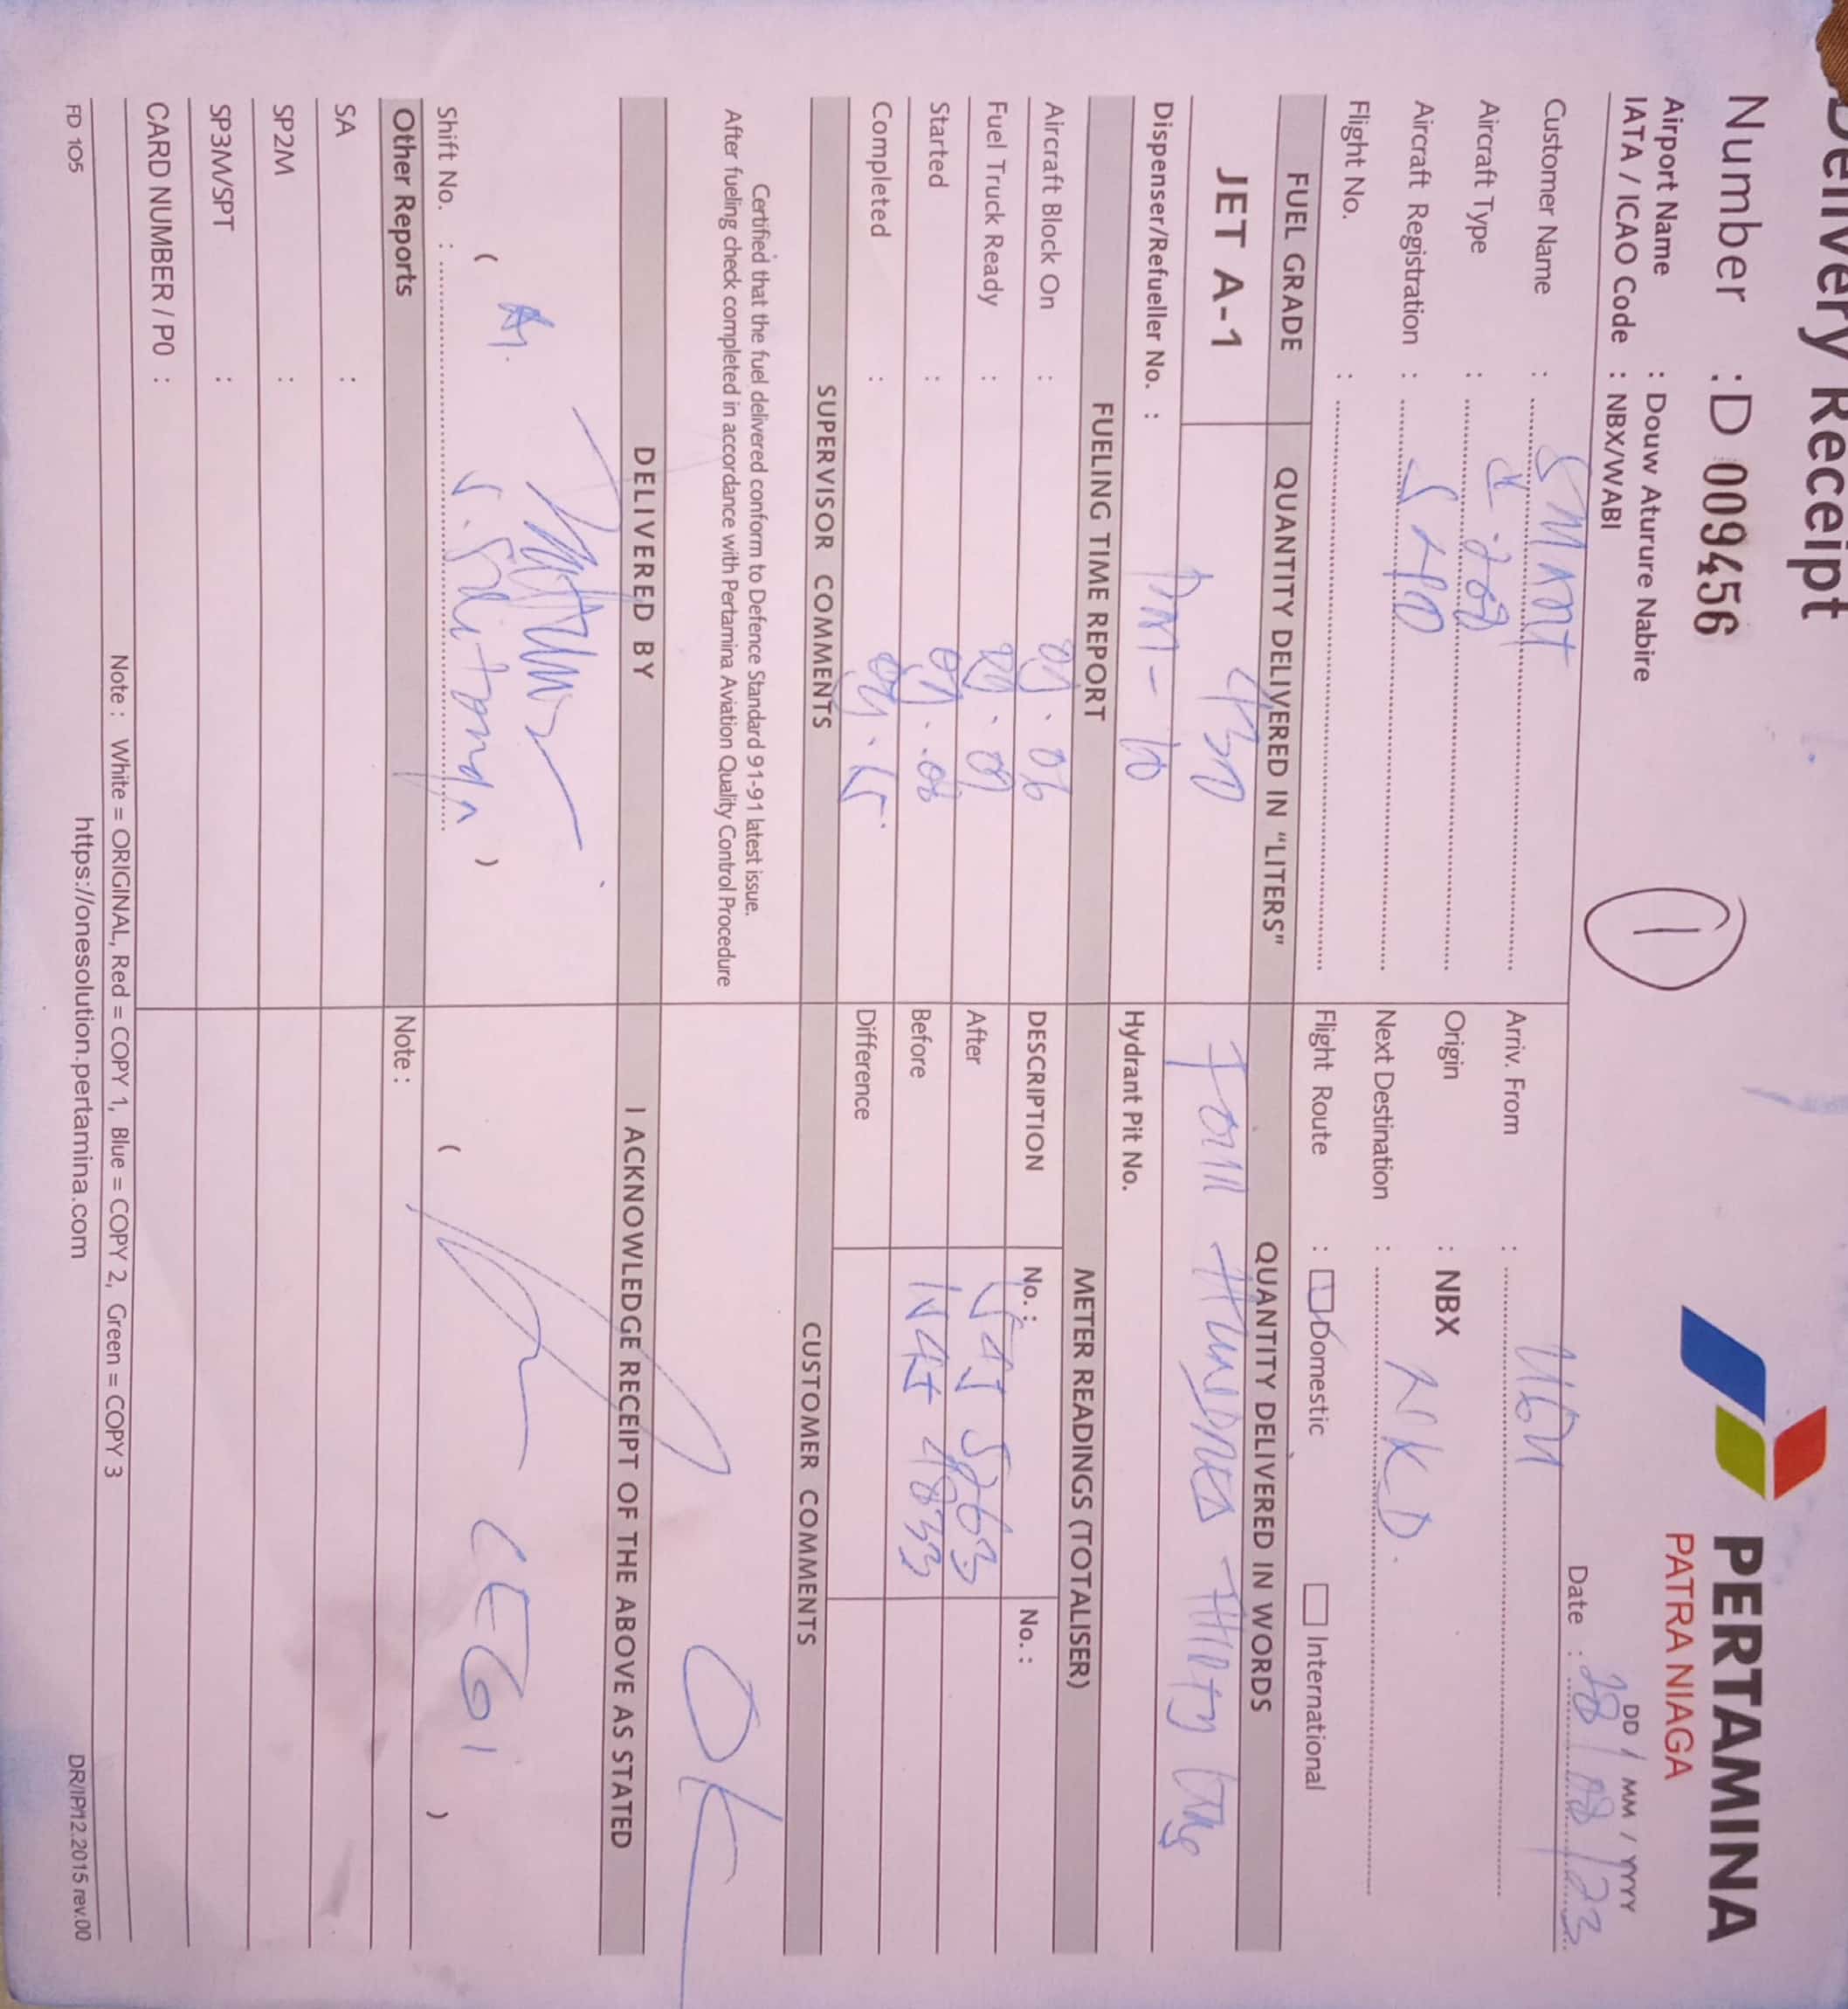 Delivery Receipt
PERTAMINA
PATRA NIAGA
Number : D 009456
1
Airport Name : Douw Aturure Nabire
IATA / ICAO Code : NBX/WABI
DD / MM / YYYY
Date : 28/08/23
Customer Name : SMART
Arriv. From :
Aircraft Type :
Origin : NBX
Aircraft Registration :
Next Destination :
Flight No. :
Flight Route : Domestic International
FUEL GRADE
QUANTITY DELIVERED IN "LITERS"
QUANTITY DELIVERED IN WORDS
JET A-1
430
Four Hundred Thirty
Dispenser/Refueller No. :
Hydrant Pit No.
FUELING TIME REPORT
METER READINGS (TOTALISER)
Aircraft Block On :
DESCRIPTION
No. :
No. :
Fuel Truck Ready :
After
Started :
Before
Completed :
Difference
SUPERVISOR COMMENTS
CUSTOMER COMMENTS
Certified that the fuel delivered conform to Defence Standard 91-91 latest issue.
After fueling check completed in accordance with Pertamina Aviation Quality Control Procedure
OK
DELIVERED BY
I ACKNOWLEDGE RECEIPT OF THE ABOVE AS STATED
( )
( )
Shift No. :
Other Reports
Note :
SA :
SP2M :
SP3M/SPT :
CARD NUMBER / PO :
Note : White = ORIGINAL, Red = COPY 1, Blue = COPY 2, Green = COPY 3
FD 105
https://onesolution.pertamina.com
DR/IP/12.2015 rev.00